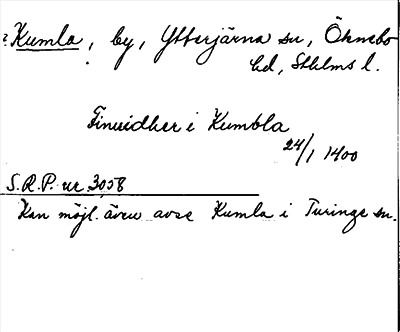 ? Kumla, by, Ytterjärna sn, Öknebo
hd, Sthlms l.
Finuidher i Kumbla
24/1 1400
S.R.P. nr 3058
Kan möjl. även avse Kumla i Turinge sn.